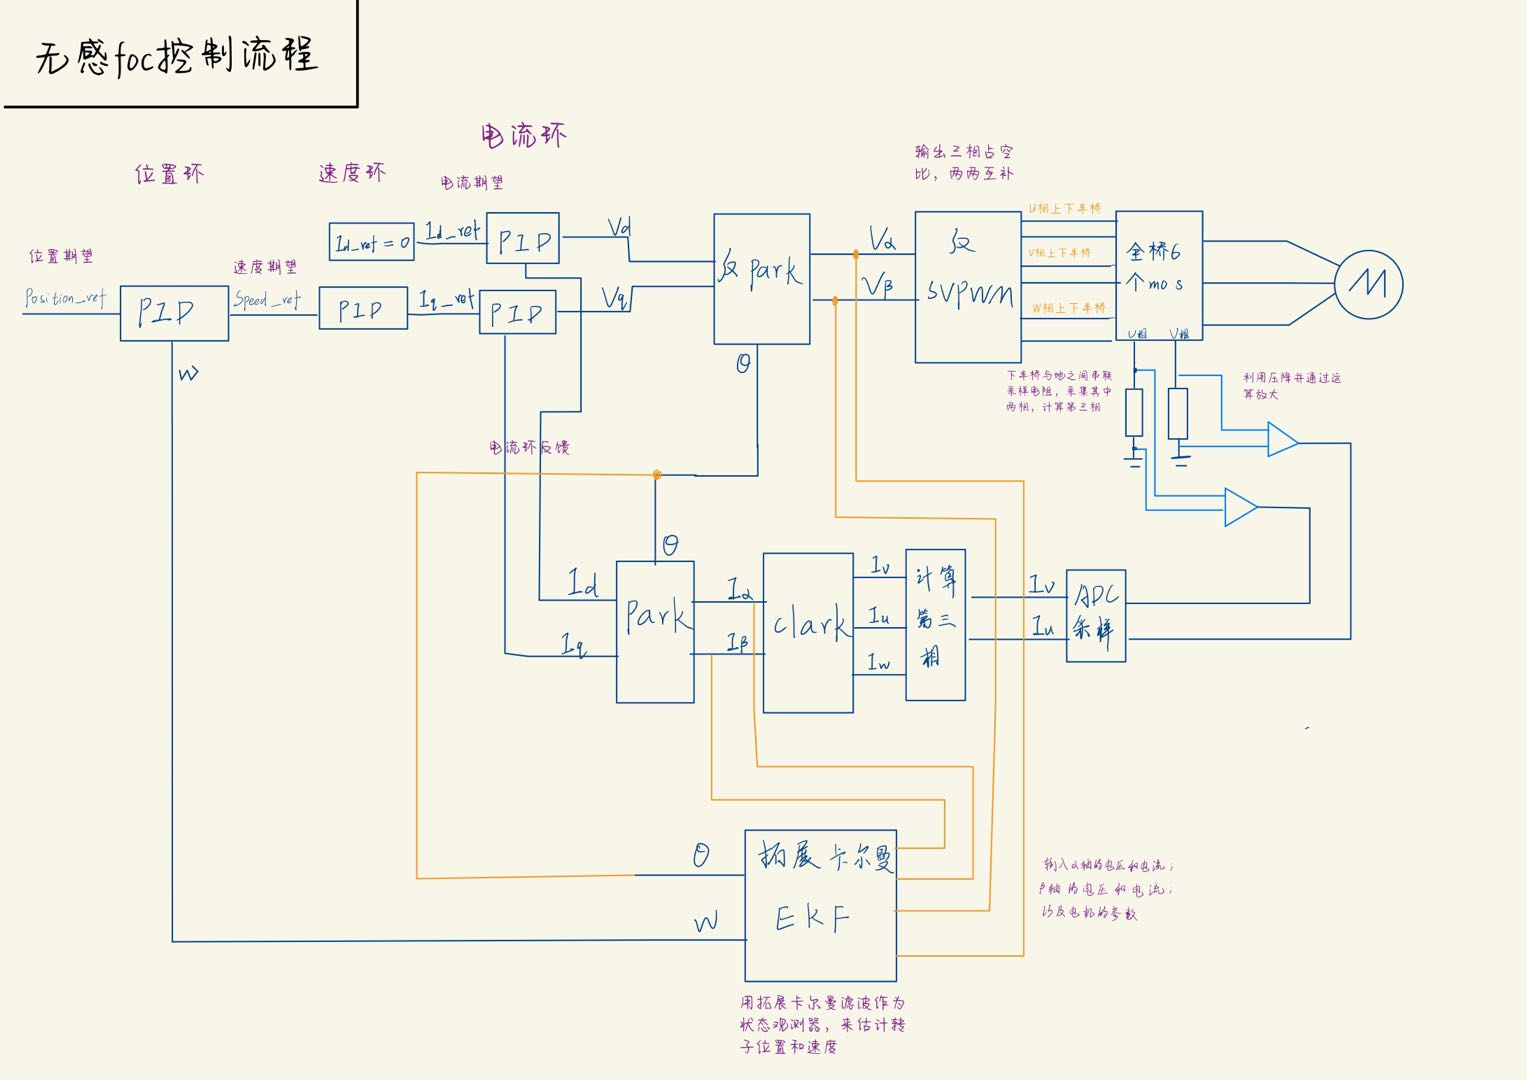 无感foc控制流程
电流环
位置环
速度环
电流期望
输出三相占空
比，两两互补
位置期望
Position_ref
PID
W
速度期望
Speed_ref
PID
Id_ref=0
Id_ref
PID
Iq_ref
PID
Vd
Vq
反park
θ
Vα
Vβ
反
SVPWM
U相上下半桥
V相上下半桥
W相上下半桥
全桥6
个mos
U相
V相
M
下半桥与地之间串联
采样电阻，采集其中
两相，计算第三相
利用压降并通过运
算放大
电流环反馈
θ
Id
Iq
Park
Iα
Iβ
Clark
Iv
Iu
Iw
计算
第三
相
Iv
Iu
ADC
采样
θ
W
拓展卡尔曼
EKF
输入α轴的电压和电流；
β轴的电压和电流；
以及电机的参数
用拓展卡尔曼滤波作为
状态观测器，来估计转
子位置和速度